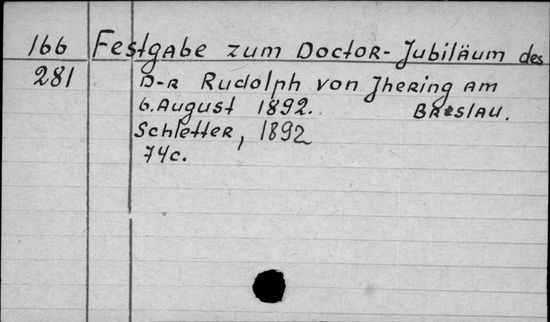 166 Festgabe zum Doctor-Jubiläum des
281 D-r Rudolph von Jhering am
6. August 1892. Breslau.
Schletter, 1892
74c.